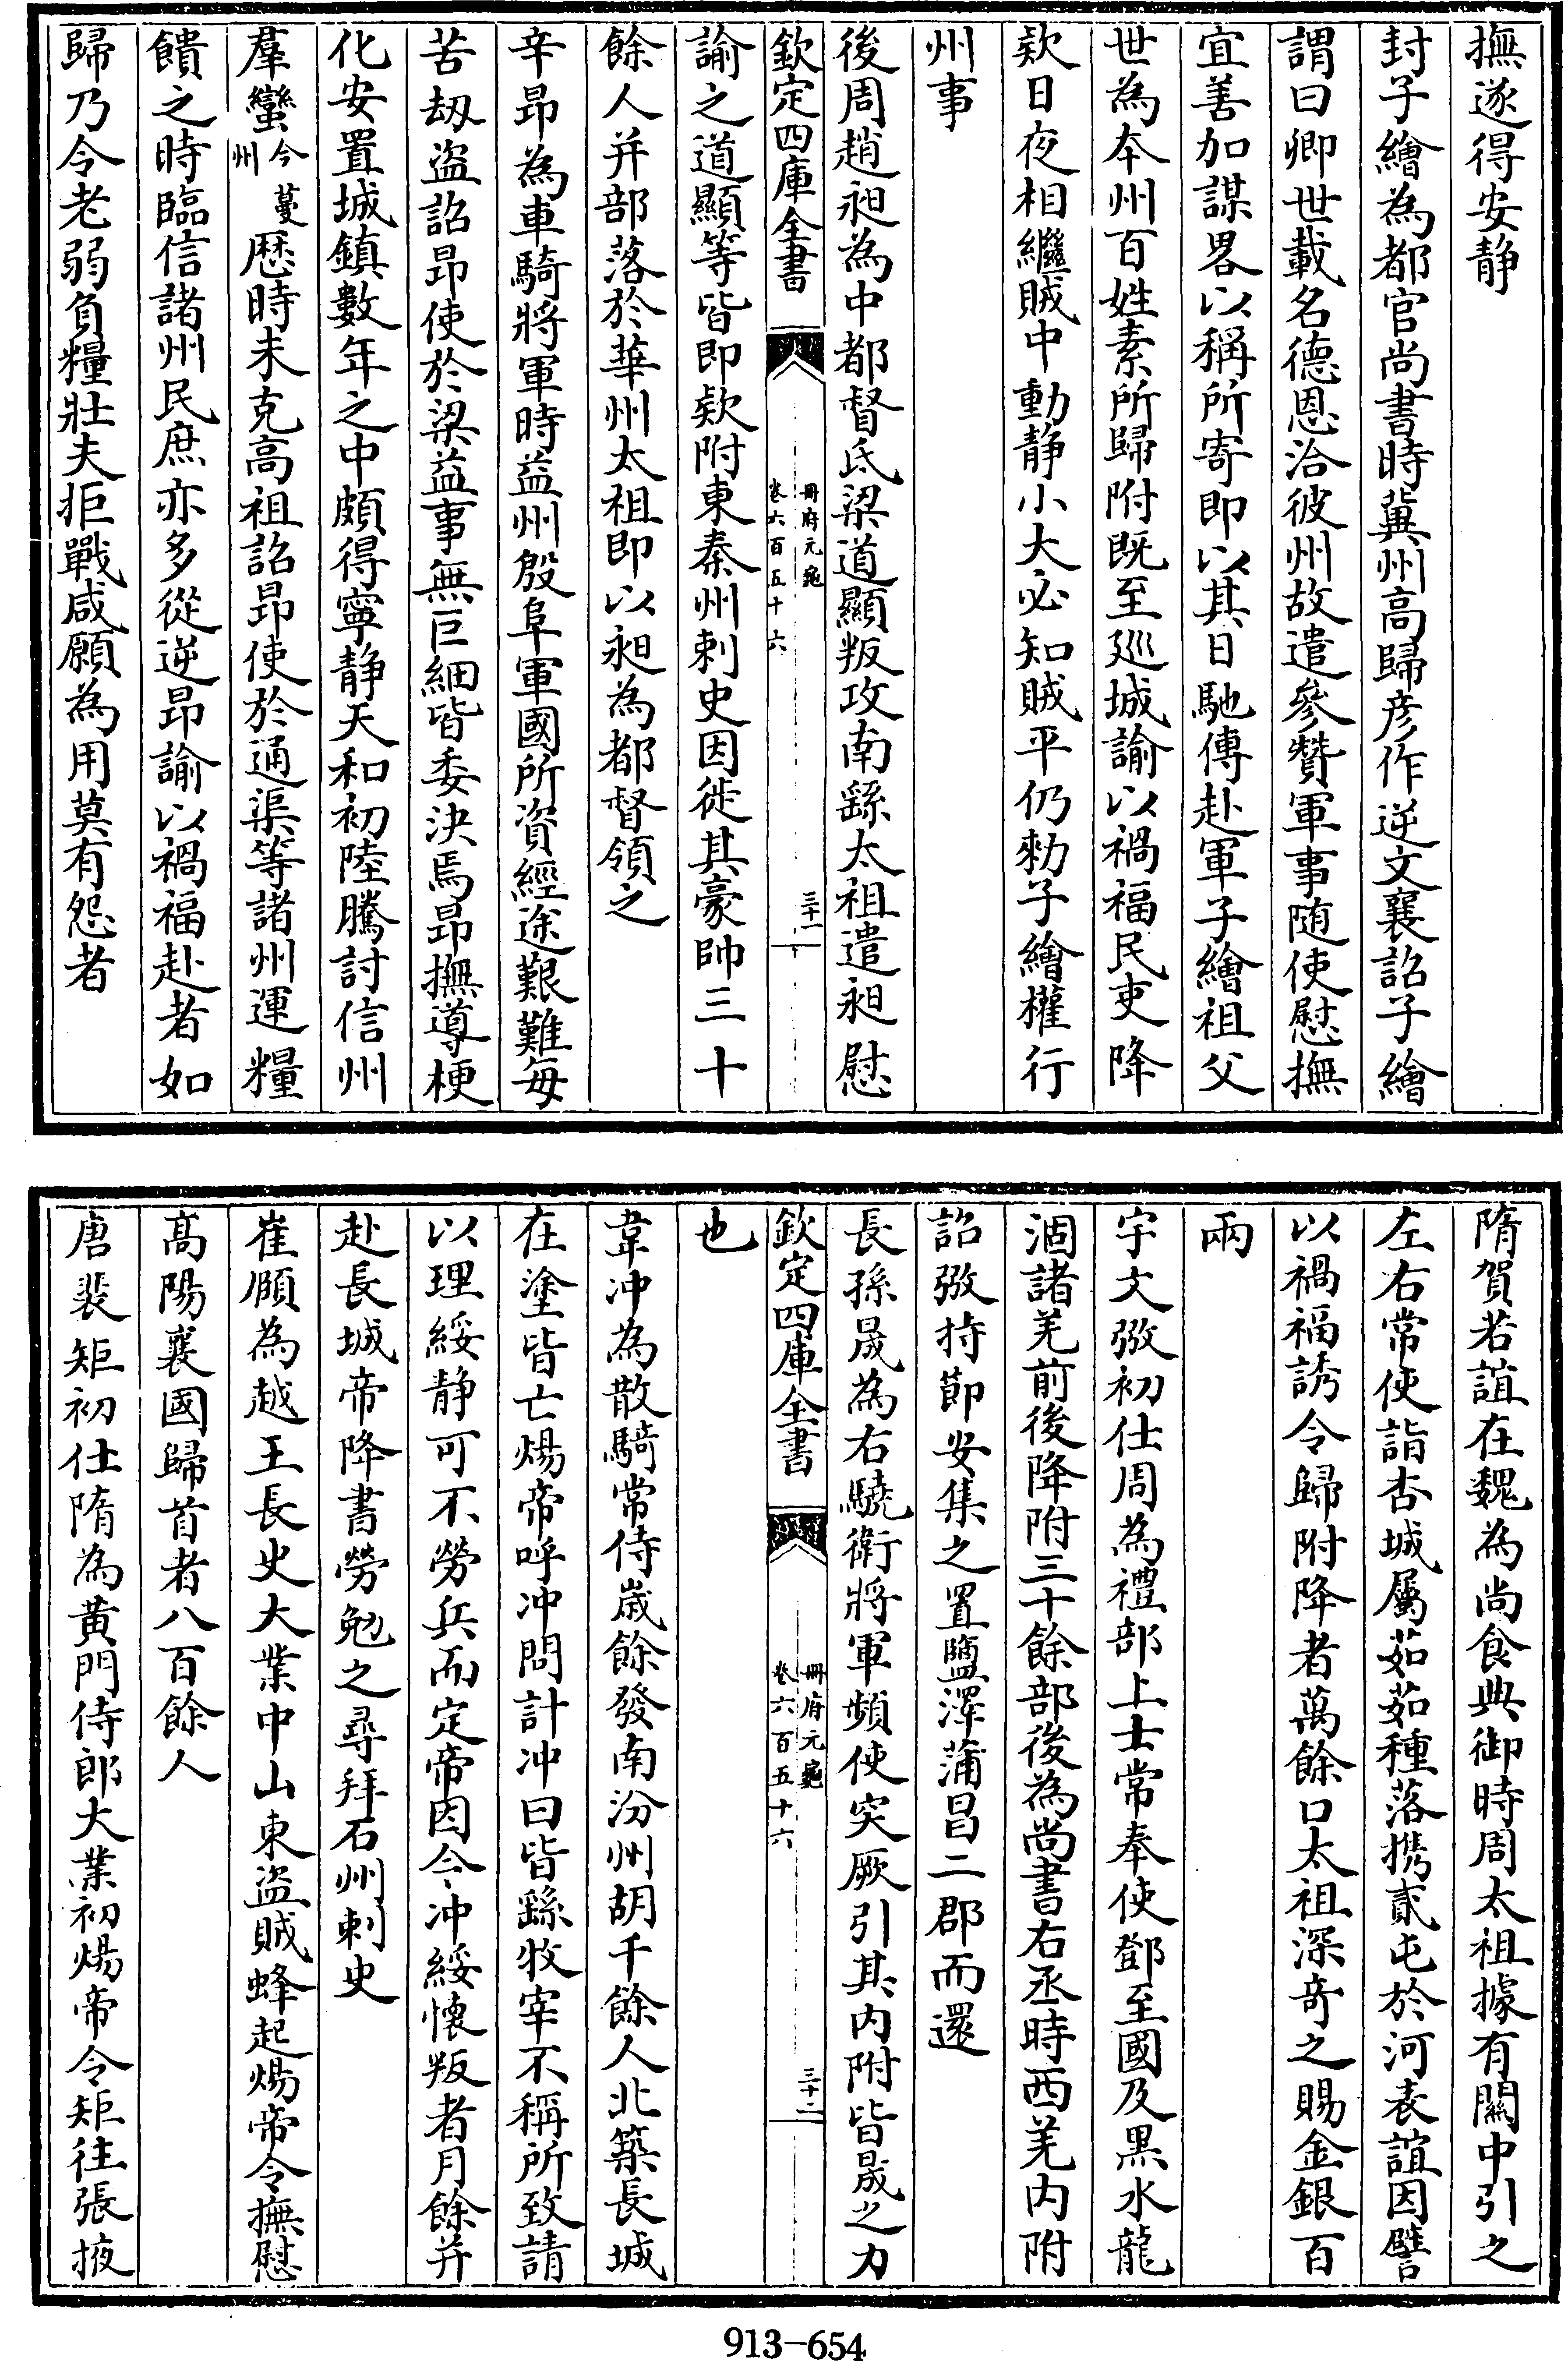 撫遂得安静
封子繪為都官尚書時冀州高歸彦作逆文襄詔子繪
謂曰卿世載名德恩洽彼州故遣參贊軍事随使慰撫
宜善加謀畧以稱所寄即以其日馳傳赴軍子繪祖父
世為本州百姓素所歸附既至廵城諭以禍福民吏降
欵日夜相繼賊中動静小大必知賊平仍勑子繪權行
州事
後周趙昶為中都督氐梁道顯叛攻南繇太祖遣昶慰
欽定四庫全書
冊府元龜
卷六百五十六
三十一
諭之道顯等皆即欵附東秦州刺史因徙其豪帥三十
餘人并部落於華州太祖即以昶為都督領之
辛昂為車騎將軍時益州殷阜軍國所資經途艱難每
苦刼盜詔昂使於梁益事無巨細皆委決焉昂撫導梗
化安置城鎮數年之中頗得寧静天和初陸騰討信州
羣蠻今蔓州歴時未克高祖詔昂使於通渠等諸州運糧
饋之時臨信諸州民庶亦多從逆昂諭以禍福赴者如
歸乃令老弱負糧壯夫拒戰咸願為用莫有怨者
隋賀若誼在魏為尚食典御時周太祖據有關中引之
左右常使詣杏城屬茹茹種落携貳屯於河表誼因譬
以禍福誘令歸附降者萬餘口太祖深竒之賜金銀百
兩
宇文㢸初仕周為禮部上士常奉使鄧至國及黑水龍
涸諸羌前後降附三十餘部後為尚書右丞時西羌内附
詔㢸持節安集之置鹽澤蒲昌二郡而還
長孫晟為右驍衛將軍頻使突厥引其内附皆晟之力
欽定四庫全書
冊府元龜
卷六百五十六
三十二
也
韋冲為散騎常侍歳餘發南汾州胡千餘人北築長城
在塗皆亡煬帝呼冲問計冲曰皆繇牧宰不稱所致請
以理綏静可不勞兵而定帝因令冲綏懐叛者月餘并
赴長城帝降書勞勉之尋拜石州刺史
崔頥為越王長史大業中山東盜賊蜂起煬帝令撫慰
髙陽襄國歸首者八百餘人
唐裴矩初仕隋為黄門侍郎大業初煬帝令矩往張掖
913-654